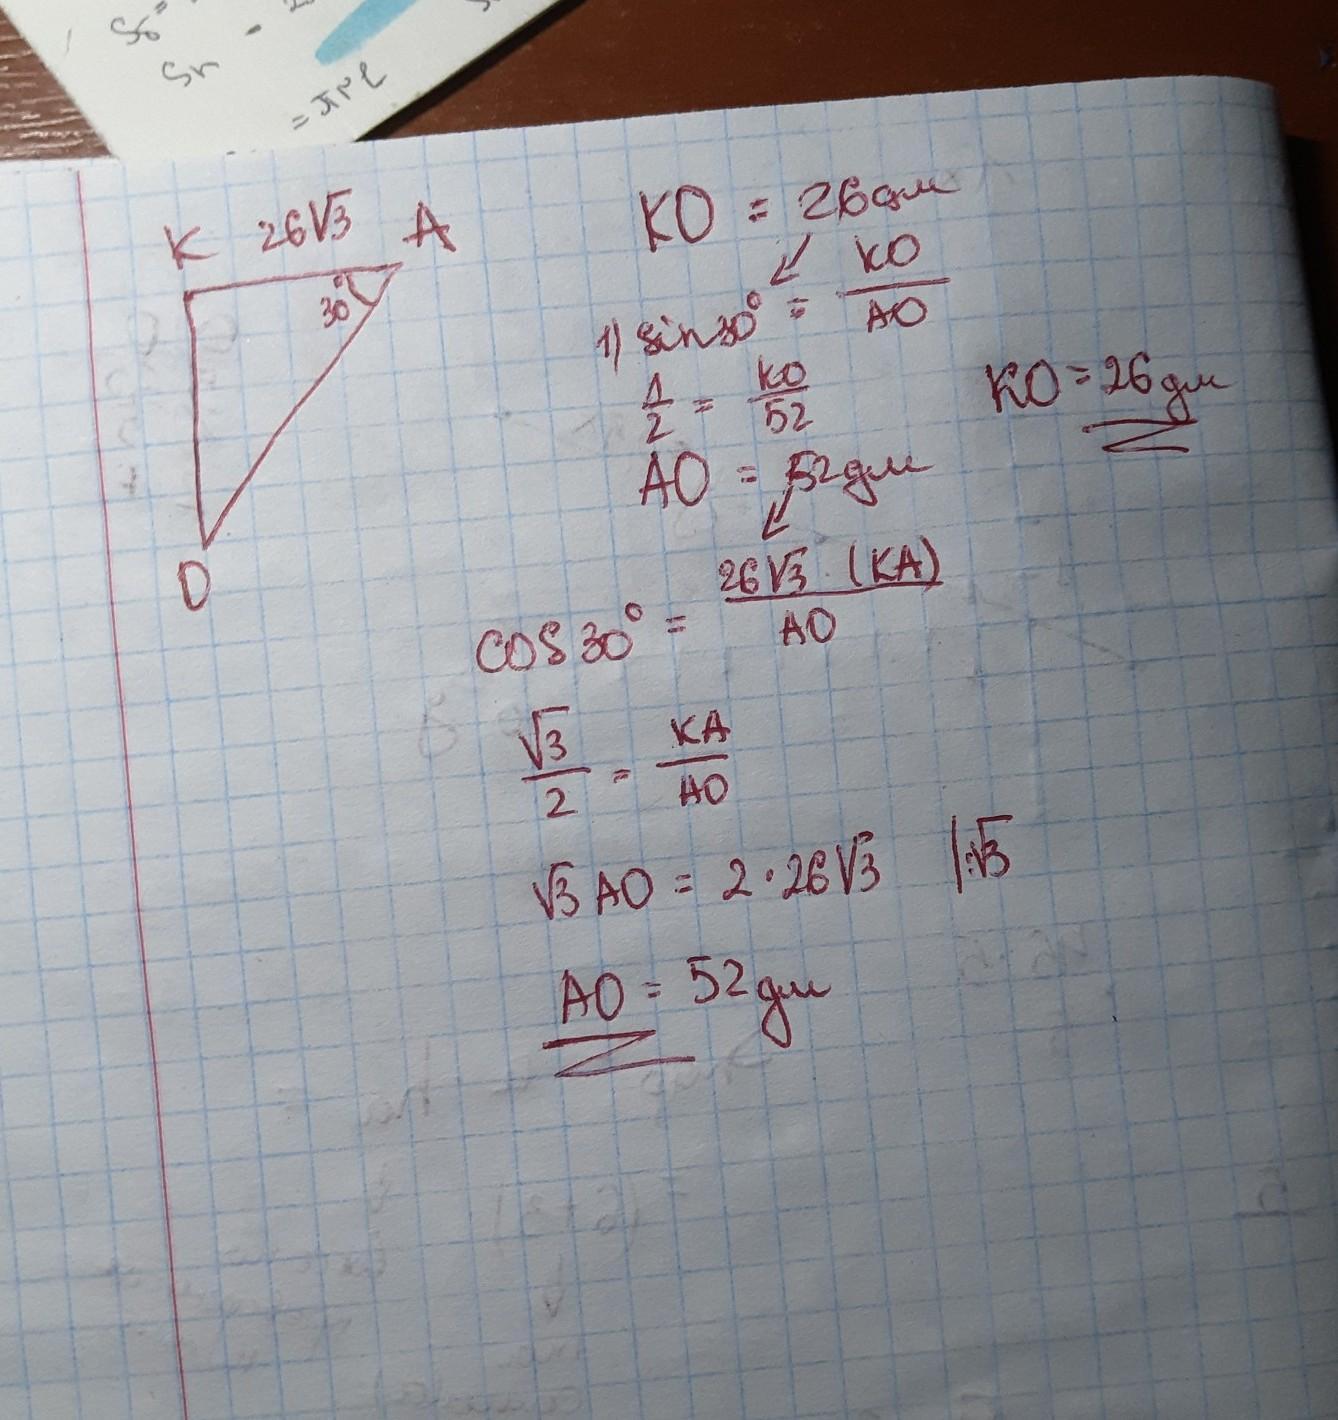 = πrl
K 26√3 A
30°
O
KO = 26 дм
1) sin 30° = KO/AO
1/2 = KO/52
KO = 26 дм
AO = 52 дм
cos 30° = 26√3 (KA)/AO
√3/2 = KA/AO
√3 AO = 2 · 26√3 |:√3
AO = 52 дм